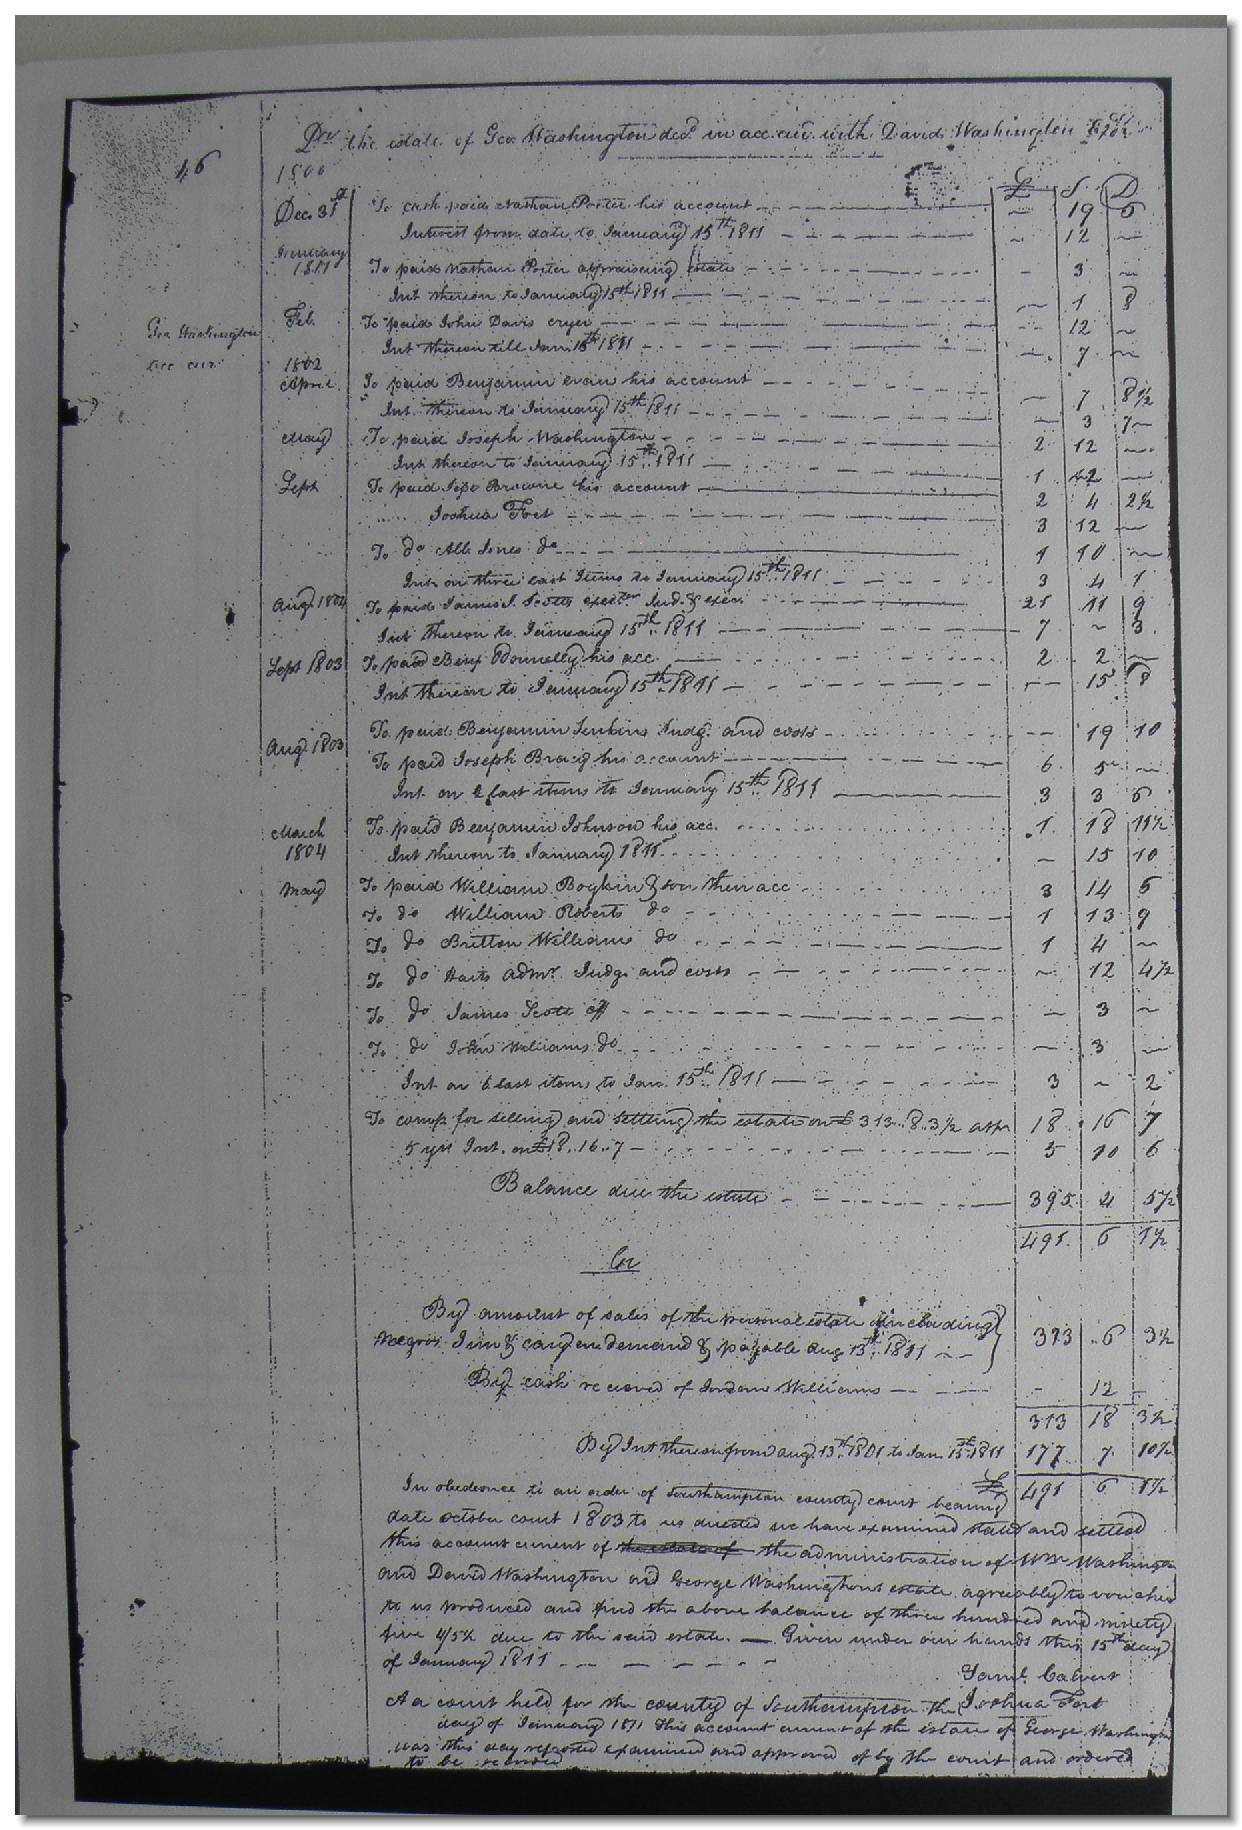 Dr. the estate of Geo. Washington decd. in acc. cur. with David Washington
46
1800
£ S D
Dec. 31st To cash paid Nathan Porter his account — 19 6
Interest from date to January 15th 1811 — 12 —
January 1801 To paid Nathan Porter appraising estate — 3 —
Int thereon to January 15th 1811 — 1 8
Geo Washington
acc cur.
Feb. To paid John Davis cryer — 12 —
Int thereon till Jan. 15th 1811 — 7 —
1802
April To paid Benjamin evan his account — 7 8½
Int. thereon to January 15th 1811 — 3 7
May To paid Joseph Washington 2 12 —
Int thereon to January 15th 1811 1 2 —
Sept To paid Browne his account 2 4 2½
Joshua Fort 3 12 —
To do Alb. Jones do 1 10 —
Int. on three last Items to January 15th 1811 3 4 1
Aug. 1804 To paid James S. Scotts exectr. Jud. & exen 21 11 9
Int thereon to January 15th 1811 7 — 3
Sept 1803 To paid Benj Donnelly his acc. 2 2 —
Int thereon to January 15th 1811 — 15 8
Aug. 1803 To paid Benjamin Jenkins Judg. and costs — 19 10
To paid Joseph Bracy his account 6 5 —
Int. on 2 last items to January 15th 1811 3 3 6
March To paid Benjamin Johnson his acc. 1 18 11½
1804 Int thereon to January 1811 — 15 10
May To paid William Boykin & son their acc 3 14 6
To do William Roberts do 1 13 9
To do Britton Williams do 1 4 —
To do Harts admr. Judg. and costs — 12 4½
To do James Scott — 3 —
To do John Williams do — 3 —
Int on 6 last items to Jan. 15th 1811 3 — 2
To comp for selling and settling the estate on £ 313.. 8.. 3½ 18 16 7
5 yrs Int. on £18.. 16.. 7 5 10 6
Balance due the estate 395 4 5½
491 6 1½
Cr
By amount of sales of the personal estate including
Negroe & payable Aug 13th. 1801 313 6 3½
By cash received of Jordan Williams — 12 —
313 18 3½
By Int thereon from Aug. 13th. 1801 to Jan. 15th. 1811 177 7 10½
£ 491 6 1½
In obedience to an order of Southampton county court bearing
date october court 1803 to us directed we have examined stated and settled
this account current of the estate of the administration of Wm Washington
and David Washington on George Washingtons estate agreeably to vouches
to us produced and find the above balance of three hundred and ninety
five 4/5½ due to the said estate. — Given under our hands this 15th day
of January 1811
Saml. Calvert
Joshua Fort
At a court held for the county of Southampton the
day of January 1811 This account current of the estate of George Washington
was this day reported examined and approved of by the court and ordered
to be recorded